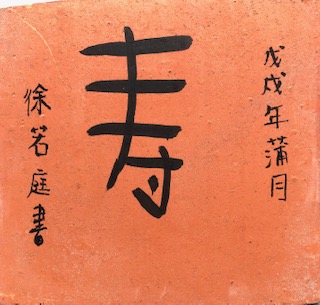 戊戌年蒲月
寿
徐若庭書